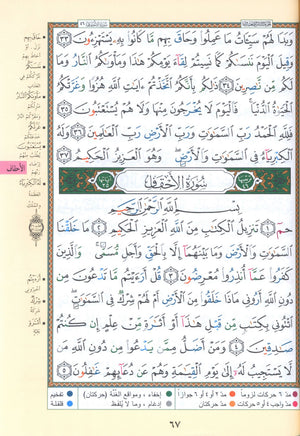 وَبَدَا لَهُمْ سَيِّـَٔاتُ مَا عَمِلُوا۟ وَحَاقَ بِهِم مَّا كَانُوا۟ بِهِۦ يَسْتَهْزِءُونَ ٣٣
وَقِيلَ ٱلْيَوْمَ نَنسَىٰكُمْ كَمَا نَسِيتُمْ لِقَآءَ يَوْمِكُمْ هَٰذَا وَمَأْوَىٰكُمُ ٱلنَّارُ وَمَا
لَكُم مِّن نَّٰصِرِينَ ٣٤ ذَٰلِكُم بِأَنَّكُمُ ٱتَّخَذْتُمْ ءَايَٰتِ ٱللَّهِ هُزُوًا وَغَرَّتْكُمُ
ٱلْحَيَوٰةُ ٱلدُّنْيَا ۚ فَٱلْيَوْمَ لَا يُخْرَجُونَ مِنْهَا وَلَا هُمْ يُسْتَعْتَبُونَ ٣٥
فَلِلَّهِ ٱلْحَمْدُ رَبِّ ٱلسَّمَٰوَٰتِ وَرَبِّ ٱلْأَرْضِ رَبِّ ٱلْعَٰلَمِينَ ٣٦ وَلَهُ
ٱلْكِبْرِيَآءُ فِى ٱلسَّمَٰوَٰتِ وَٱلْأَرْضِ ۖ وَهُوَ ٱلْعَزِيزُ ٱلْحَكِيمُ ٣٧
سُورَةُ الْأَحْقَافِ
بِسْمِ ٱللَّهِ ٱلرَّحْمَٰنِ ٱلرَّحِيمِ
حمٓ ١ تَنزِيلُ ٱلْكِتَٰبِ مِنَ ٱللَّهِ ٱلْعَزِيزِ ٱلْحَكِيمِ ٢ مَا خَلَقْنَا
ٱلسَّمَٰوَٰتِ وَٱلْأَرْضَ وَمَا بَيْنَهُمَآ إِلَّا بِٱلْحَقِّ وَأَجَلٍ مُّسَمًّى ۚ وَٱلَّذِينَ
كَفَرُوا۟ عَمَّآ أُنذِرُوا۟ مُعْرِضُونَ ٣ قُلْ أَرَءَيْتُم مَّا تَدْعُونَ مِن
دُونِ ٱللَّهِ أَرُونِى مَاذَا خَلَقُوا۟ مِنَ ٱلْأَرْضِ أَمْ لَهُمْ شِرْكٌ فِى ٱلسَّمَٰوَٰتِ ۖ
ٱئْتُونِى بِكِتَٰبٍ مِّن قَبْلِ هَٰذَآ أَوْ أَثَٰرَةٍ مِّنْ عِلْمٍ إِن كُنتُمْ
صَٰدِقِينَ ٤ وَمَنْ أَضَلُّ مِمَّن يَدْعُوا۟ مِن دُونِ ٱللَّهِ مَن
لَّا يَسْتَجِيبُ لَهُۥٓ إِلَىٰ يَوْمِ ٱلْقِيَٰمَةِ وَهُمْ عَن دُعَآئِهِمْ غَٰفِلُونَ ٥
الأحقاف
مدّ ٦ حركات لزوماً مدّ ٢ أو ٤ أو ٦ جوازاً إخفاء، ومواقع الغُنَّة (حركتان) تفخيم
مدّ واجب ٤ أو ٥ حركات مدّ حركتان إدغام، وما لا يُلفَظ قلقلة
٦٧